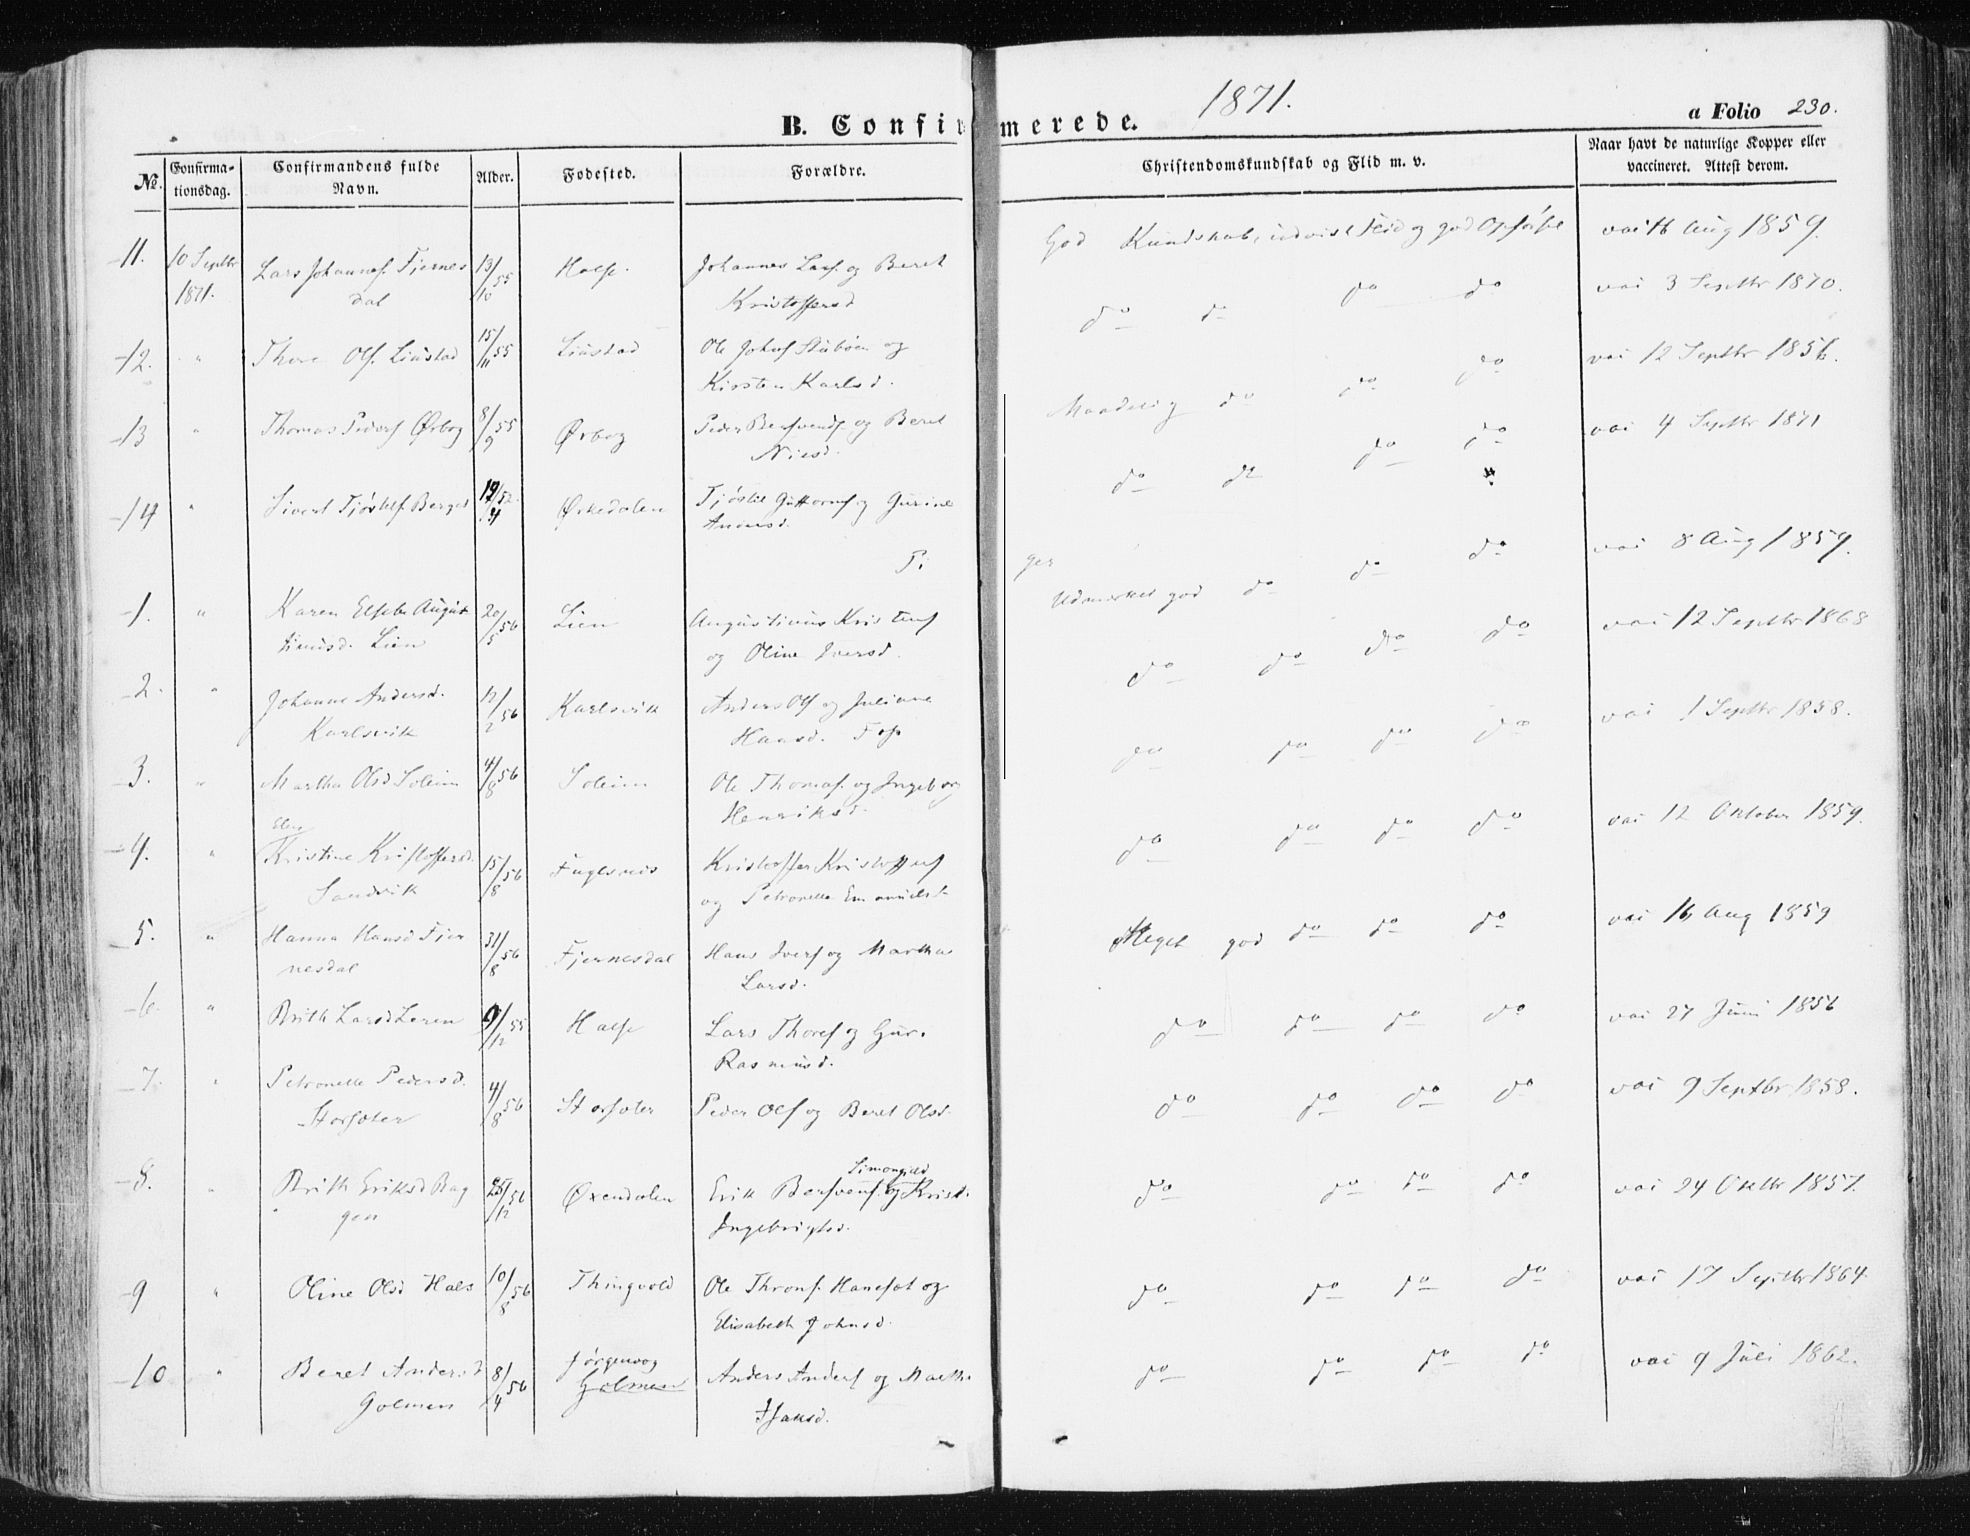 1871.
B. Confirmerede.
a Folio 230.
No. Confirmationsdag. Confirmandens fulde Navn. Alder. Fødested. Forældre. Christendomskundskab og Flid m. v. Naar havt de naturlige Kopper eller vaccineret. Attest derom.
11. 10 Septbr 1871. Lars Johannes. Fjernes
dal 13/10 55 Halse. Johannes Lars. og Beret
Kristoffersd God Kundskab, udvist Flid og god Opførsel vac 16 Aug 1859.
12. " Thore Ols. Liustad 15/11 55 Liustad Ole Johns Stubøen og
Kirsten Karlsd. do do do do vac 3 Septbr 1870.
13 " Thomas Peders Ørbog 8/9 55 Ørbog Peder Bersvends. og Beret
Nilsd. Maadelig do do do vac 12 Septbr 1856.
14 " Sivert Tjøstels. Berget 19/4 52 Ørkedalen Tjøstel Guttorms. og Gurine
Andersd. do do do do vac 4 Septbr 1871
Pi ger
1. " Karen Elsebe August
tinusd. Lien 20/5 56 Lien Augustinus Kristens
og Oline Iversd. Udmerket god do do do vac 8 Aug 1859.
2. " Johanne Andersd.
Karlsvik 12/2 56 Karlsvik Anders Ols og Juliane
Hansd. do do do do vac 12 Septbr 1868
3. " Martha Olsd Soleim 4/8 56 Soleim Ole Thomas. og Ingeborg
Henriksd. do do do do vac 1 Septbr 1858.
4. " Elen
Kristine Kristoffersd.
Sandvik 15/8 56 Fuglsnes Kristoffer Kristoffers
og Petronelle Emanuelsd. do do do do vac 12 Oktober 1859.
5. " Hanna Hansd Fjer
nesdal 31/8 56 Fjernesdal Hans Ivers og Martha
Larsd. Meget god do do do vac 16 Aug 1859
6. " Brith Larsd Leren 9/12 55 Halse Lars Thores og Guri
Rasmusd. do do do do vac 27 Juni 1856
7. " Petronelle Pedersd.
Storsæter 4/8 56 Storsæter Peder Ols og Beret Olsd. do do do do vac 9 Septbr 1858.
8. " Brith Eriksd Bag
gen 25/12 56 Øxendalen Erik Bersvens. og Kristi
Ingebrigtsd. do do do do vac 24 Oktbr 1857.
9 " Oline Olsd Hals 10/8 56 Thingvold Ole Throns. Hanesæt og
Elisabeth Johnsd. do do do do vac 17 Septbr 1864.
10 " Beret Andersd
Golmen 8/4 56 Jørgenvog
Golmen Anders Anders og Marthe
Isaksd. do do do do vac 9 Juli 1862.